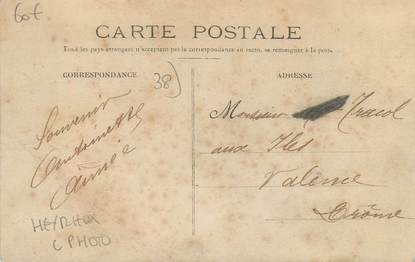 60€
CARTE POSTALE
Tous les pays étrangers n'acceptent pas la correspondance au recto, se renseigner à la poste.
CORRESPONDANCE
38)
ADRESSE
Souvenir
Antoinette
Aimée
Monsieur Tracol
aux Iles
Valence
Drôme
HEYRIEUX
C PHOTO